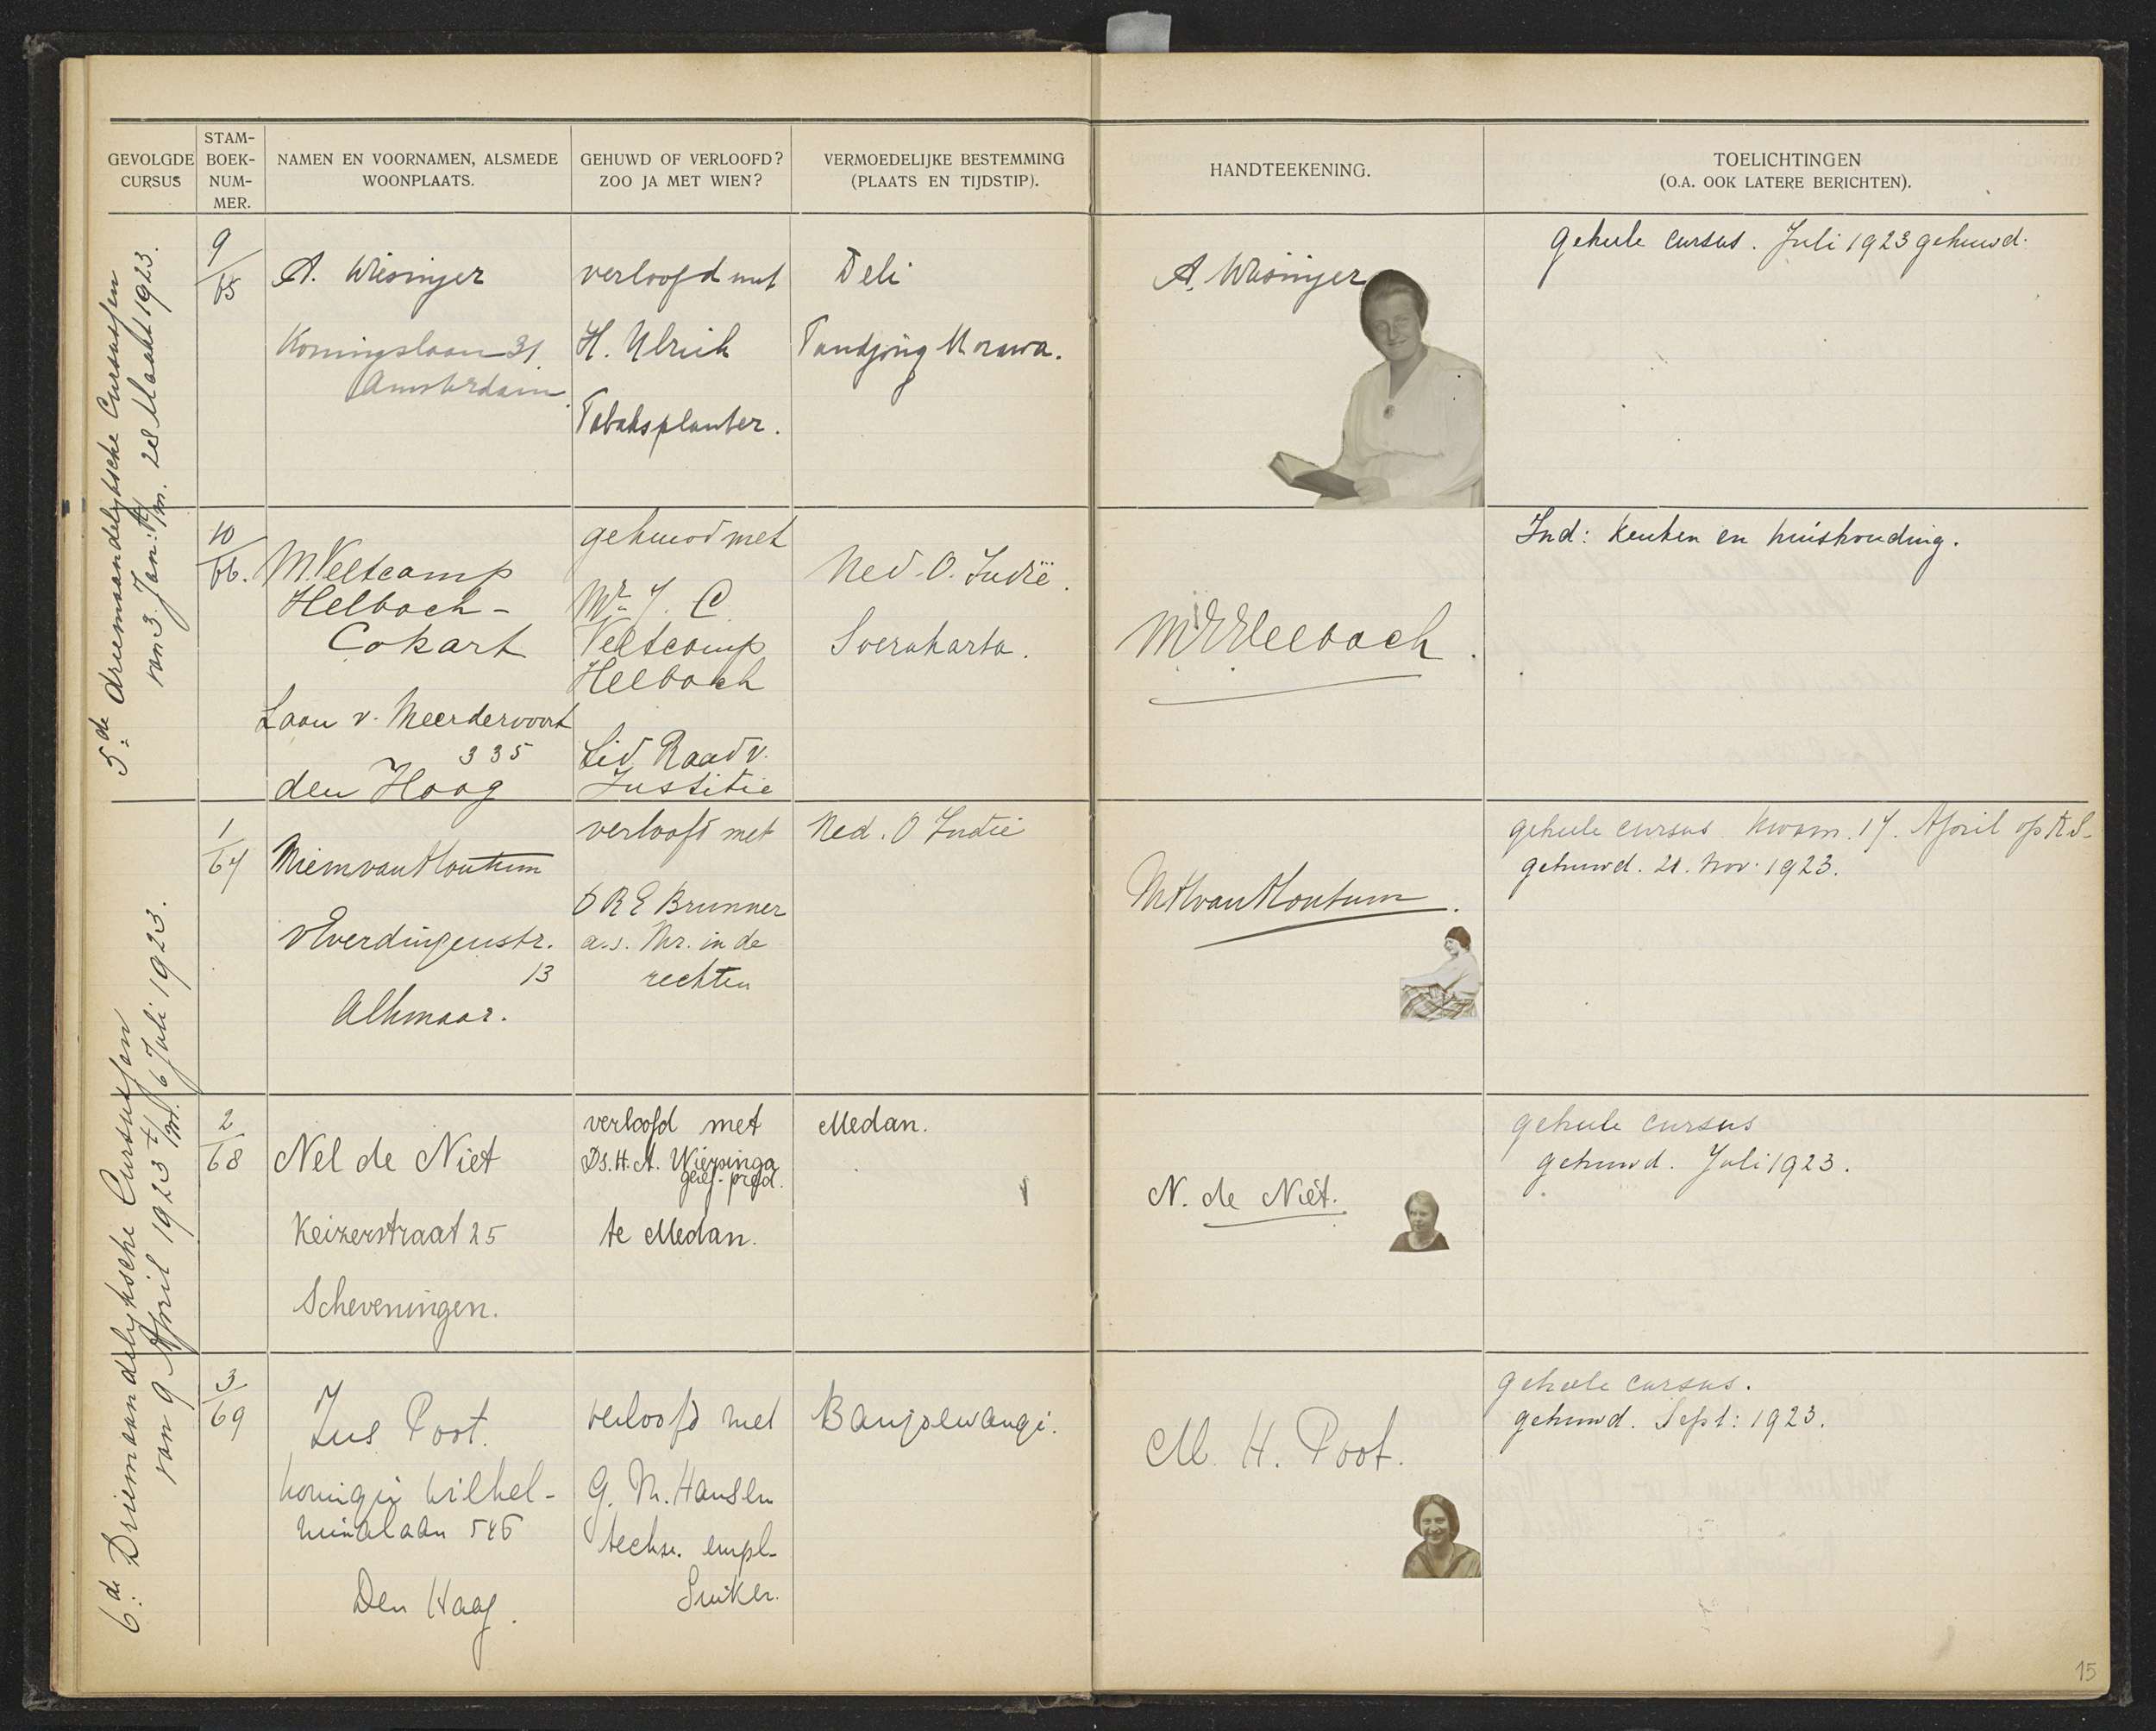 GEVOLGDE
CURSUS
STAM-
BOEK-
NUM-
MER.
NAMEN EN VOORNAMEN, ALSMEDE
WOONPLAATS.
GEHUWD OF VERLOOFD?
ZOO JA MET WIEN?
VERMOEDELIJKE BESTEMMING
(PLAATS EN TIJDSTIP).
HANDTEEKENING.
TOELICHTINGEN
(O.A. OOK LATERE BERICHTEN).
5de driemaandelijksche Cursussen
van 3 Jan: t/m. 28 Maart 1923.
9/65
A. Wiesinger
Koningslaan 31
Amsterdam.
verloofd met
H. Ulrich
Tabaksplanter.
Deli
Tandjong Morawa.
A. Wiesinger
geheele cursus. Juli 1923 gehuwd.
10/66.
M. Veltcamp
Helbach-
Cokart
Laan v. Meerdervoort
335
den Haag
gehuwd met
Mr. J. C.
Veltcamp
Helbach
Lid Raad v.
Justitie
Ned. O. Indië.
Soerakarta.
Ind: keuken en huishouding.
6de Driemaandelijksche Cursussen
van 9 April 1923 t/m. 6 Juli 1923.
1/67
Miem van Houtum
v Everdingenstr.
13
Alkmaar.
verloofd met
D R E Brunner
a.s. Mr. in de
rechten
Ned. O Indië
MH van Houtum.
geheele cursus kwam 17. April op K.S.
gehuwd. 21. Nov. 1923.
2/68
Nel de Niet
Keizerstraat 25
Scheveningen.
verloofd met
Ds. H. A. Wiersinga
geref. pred.
te Medan.
Medan.
N. de Niet.
geheele cursus
gehuwd. Juli 1923.
3/69
Zus Poot.
Koningin Wilhel-
minalaan 546
Den Haag.
verloofd met
G. M. Hansen
techn. empl.
Suiker.
Banjoewangi.
M. H. Poot.
geheele cursus.
gehuwd. Sept: 1923.
15